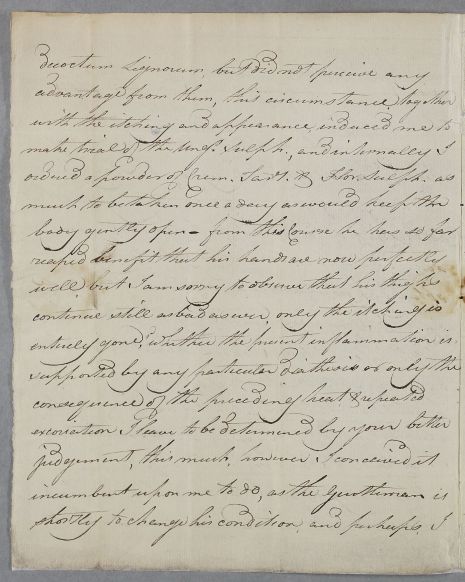 decoctum Lignorum, but did not perceive any
advantage from them, this circumstance, together
with the itching and appearance, induced me to
make trial of the Ung.t Sulph., and internally I
ordered a powder of Crem. Tart. & Flor. Sulph. as
much to be taken once a day as would keep the
body gently open – from this Course he has so far
reap'd benefit that his hands are now perfectly
well, but I am sorry to observe that his thighs
continue still as bad as ever, only the itching is
entirely gone, whether the present inflammation is
supported by any particular diathesis or only the
consequence of the preceding heat & repeated
excoriation I leave to be determined by your better
judgement, this much, however I conceived it
incumbent upon me to do, as the Gentleman is
shortly to change his condition, and perhaps I